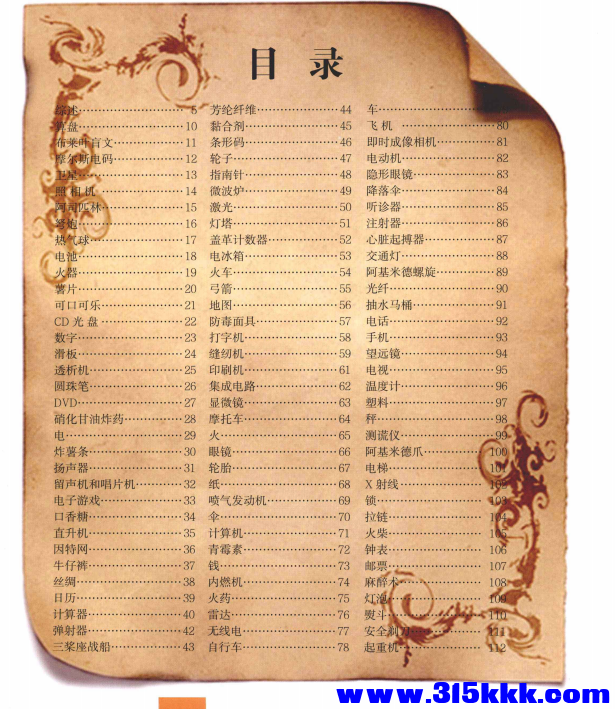 目 录
综述 5
算盘 10
布莱叶盲文 11
摩尔斯电码 12
卫星 13
照相机 14
阿司匹林 15
弩炮 16
热气球 17
电池 18
火器 19
薯片 20
可口可乐 21
CD 光盘 22
数字 23
滑板 24
透析机 25
圆珠笔 26
DVD 27
硝化甘油炸药 28
电 29
炸薯条 30
扬声器 31
留声机和唱片机 32
电子游戏 33
口香糖 34
直升机 35
因特网 36
牛仔裤 37
丝绸 38
日历 39
计算器 40
弹射器 42
三桨座战船 43
芳纶纤维 44
黏合剂 45
条形码 46
轮子 47
指南针 48
微波炉 49
激光 50
灯塔 51
盖革计数器 52
电冰箱 53
火车 54
弓箭 55
地图 56
防毒面具 57
打字机 58
缝纫机 59
印刷机 61
集成电路 62
显微镜 63
摩托车 64
火 65
眼镜 66
轮胎 67
纸 68
喷气发动机 69
伞 70
计算机 71
青霉素 72
钱 73
内燃机 74
火药 75
雷达 76
无线电 77
自行车 78
车
飞机 80
即时成像相机 81
电动机 82
隐形眼镜 83
降落伞 84
听诊器 85
注射器 86
心脏起搏器 87
交通灯 88
阿基米德螺旋 89
光纤 90
抽水马桶 91
电话 92
手机 93
望远镜 94
电视 95
温度计 96
塑料 97
秤 98
测谎仪 99
阿基米德爪 100
电梯 101
X 射线 102
锁 103
拉链 104
火柴 105
钟表 106
邮票 107
麻醉术 108
灯泡 109
熨斗 110
安全剃刀 111
起重机 112
www.315kkk.com